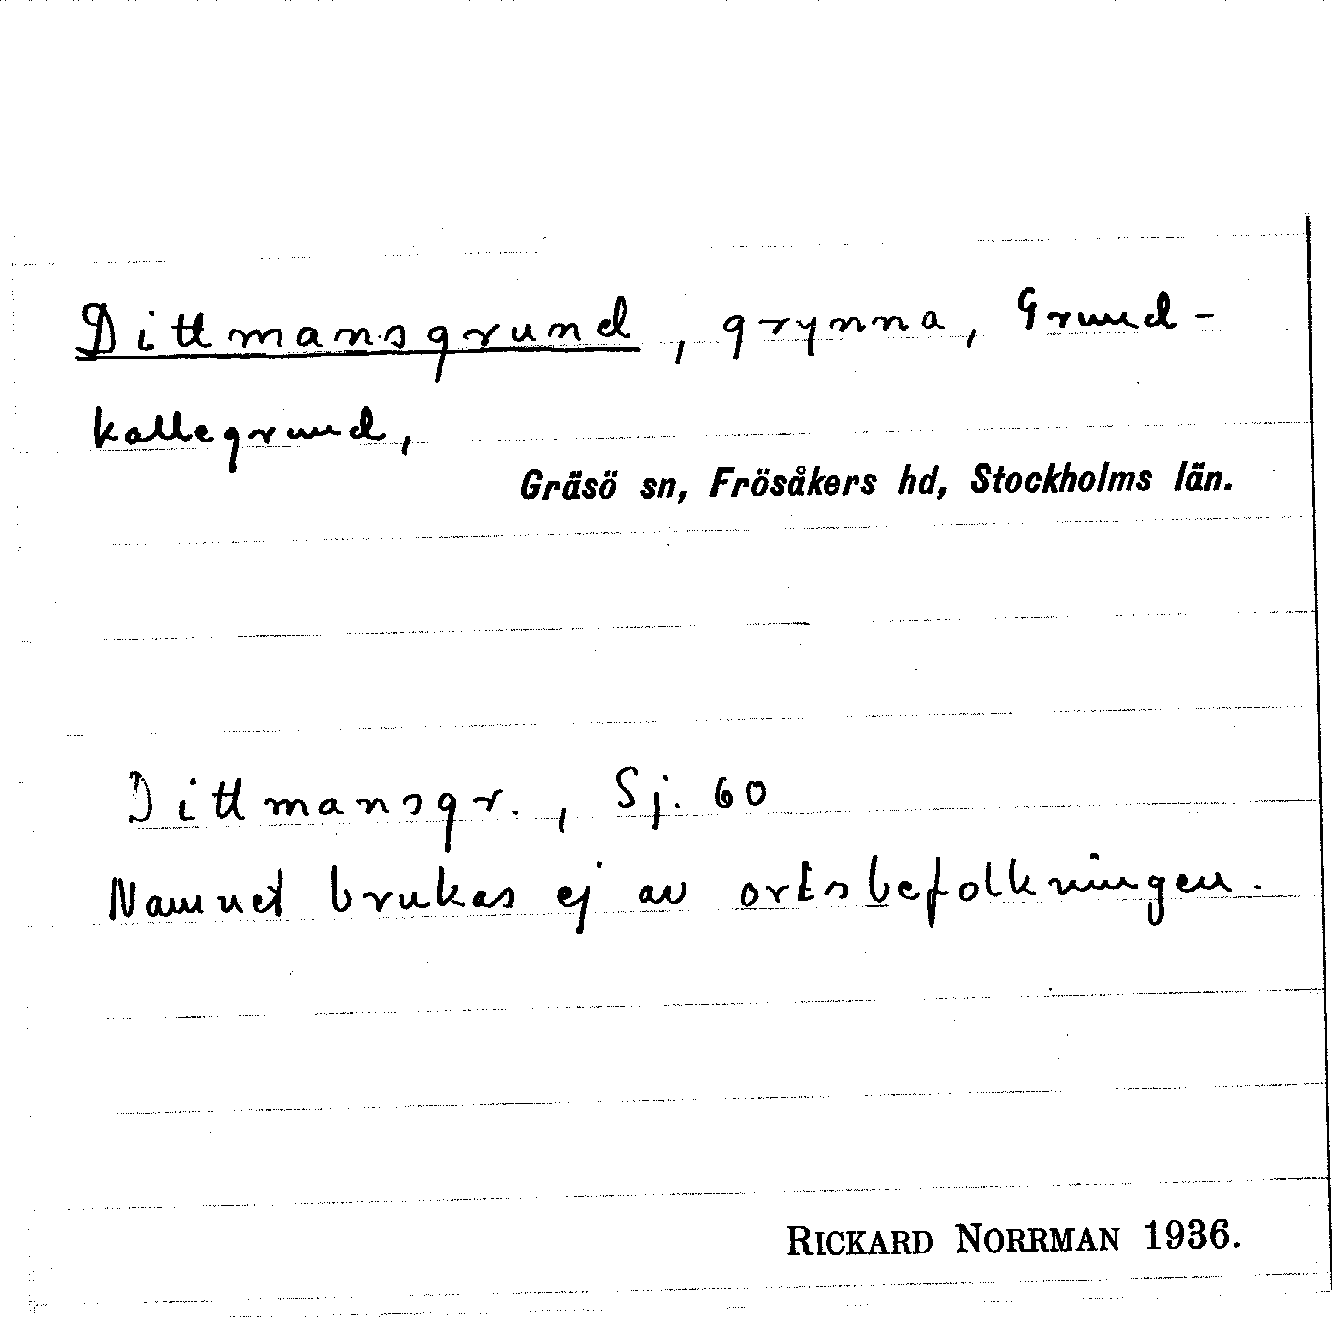 Dittmansgrund, grynna, Grund-
kallegrund,
Gräsö sn, Frösåkers hd, Stockholms län.
Dittmansgr., Sj. 60
Namnet brukas ej av ortsbefolkningen.
RICKARD NORRMAN 1936.